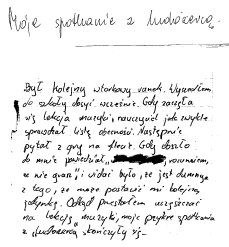 Moje spotkanie z ludożercą.
Był kolejny wtorkowy ranek. Wyszedłem
do szkoły dosyć wcześnie. Gdy zaczęła
się lekcja muzyki, nauczyciel jak zwykle
sprawdzał listę obecności. Następnie
pytał z gry na flecie. Gdy doszło
do mnie powiedział, rozumiem,
że nie grasz" i widać było, że jest dumny
z tego, że może postawić mi kolejną
jedynkę. Odkąd przestałem uczęszczać
na lekcję muzyki, moje przykre spotkania
z "ludożercą" skończyły się.